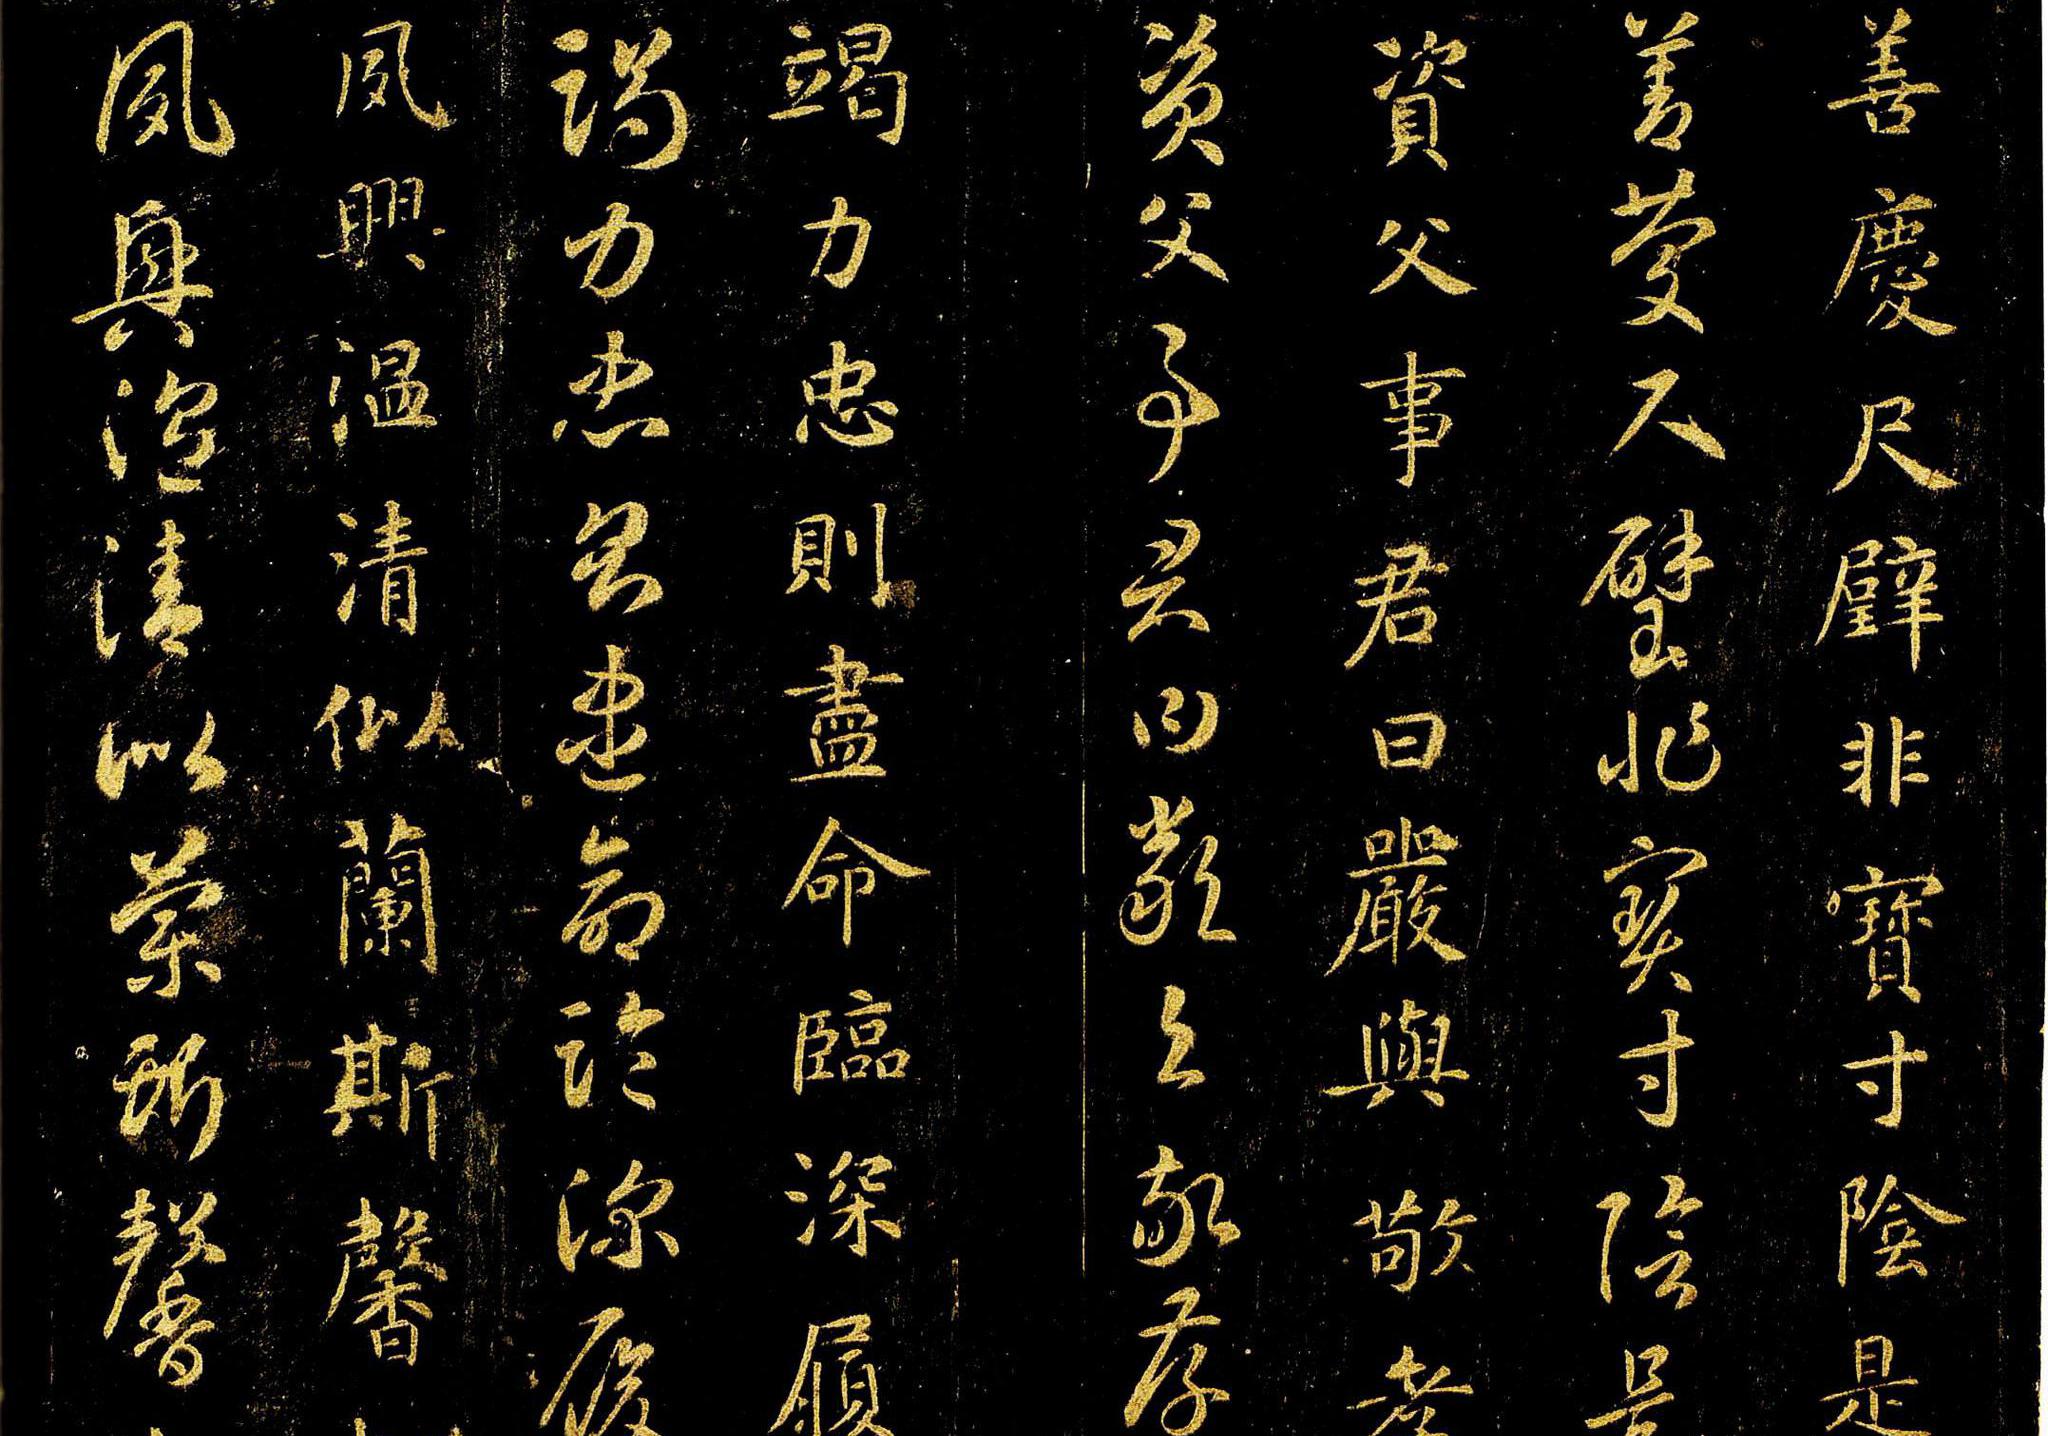 善慶尺璧非寶寸陰是
善慶尺璧非寶寸陰是
資父事君曰嚴與敬孝
資父事君曰嚴与敬孝
竭力忠則盡命臨深履
竭力忠則盡命臨深履
夙興温清似蘭斯馨
夙興温清似蘭斯馨